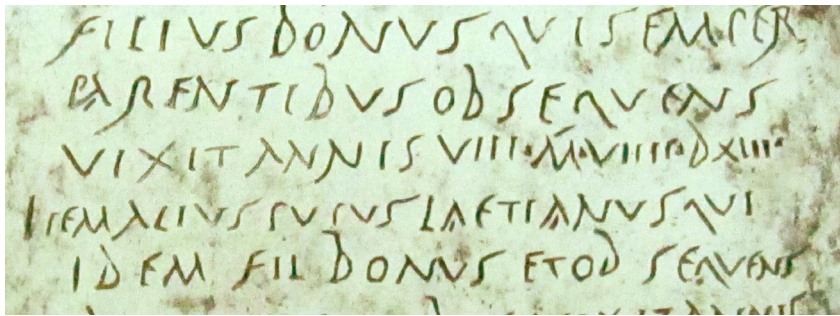 FILIVS BONVS QVI SEMPER
PARENTIBVS OBSEQVENS
VIXIT ANNIS VIII·M·VIIII·D XIII·
ITEM LAETIANVS QVI
IDEM FIL BONVS ET OBSEQVENS